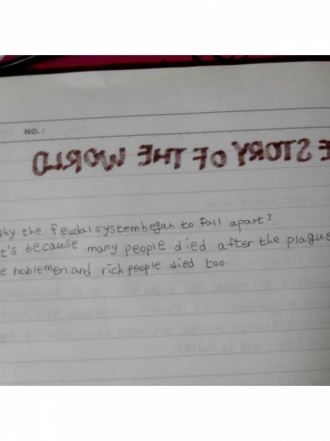 NO. /
STORY OF THE WORLD
Why the feudal system began to fall apart?
t's because many people died after the plague
e noblemen and rich people died too